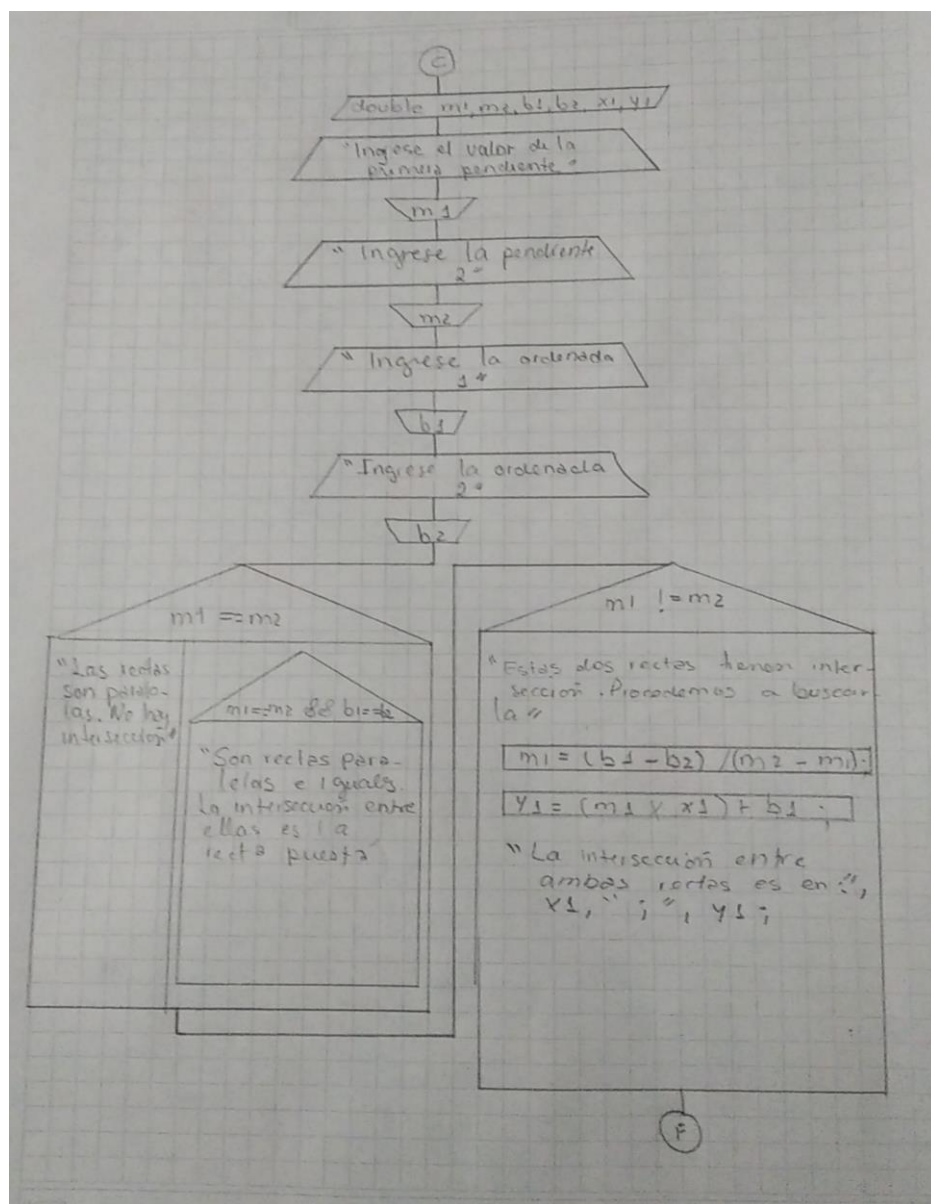 C
double m1, m2, b1, b2, x1, y1
"Ingese el valor de la
primera pendiente"
m1
"Ingrese la pendiente
2"
m2
"Ingrese la ordenada
1"
b1
"Ingrese la ordenada
2"
b2
m1 == m2
"Las rectas
son parale-
las. No hay
intersección"
m1==m2 && b1==b2
"Son rectas para-
lelas e iguals.
La intersección entre
ellas es la
recta puesta
m1 != m2
"Estas dos rectas tienen inter-
sección. Procedemos a buscar
la"
m1 = (b1 - b2) / (m2 - m1);
y1 = (m1 * x1) + b1 ;
"La intersección entre
ambas rectas es en:",
x1, " ; ", y1 ;
F